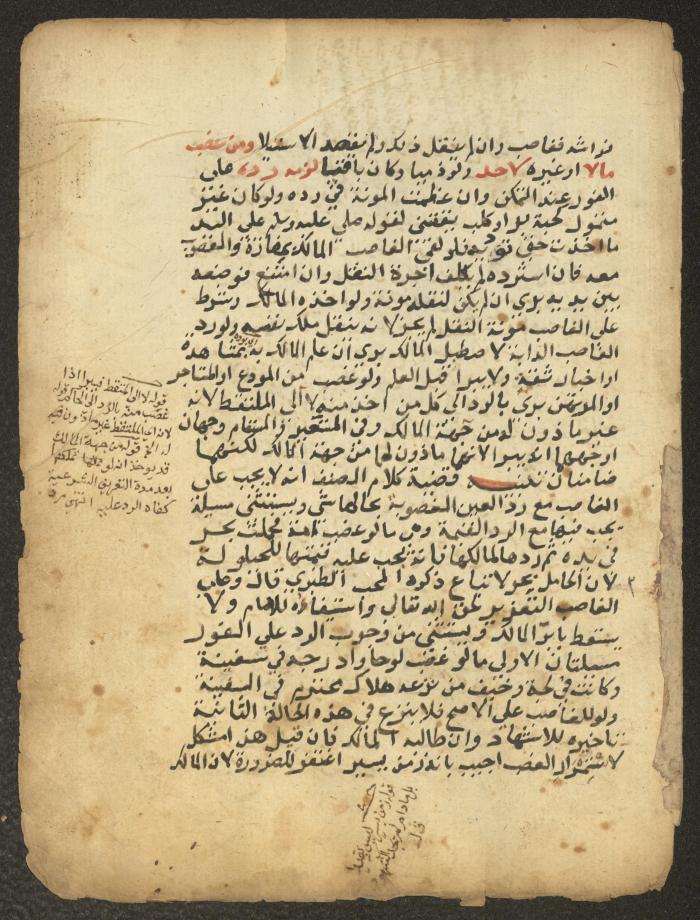 فراشه فغاصب وان لم ينقل ذلك ولم يقصد الاستيلا ومن غصب
مالا او غيره لاحد ولو ذميا وكان باقيا لزمه رده على
الفور عند التمكن وان عظمت المونة في رده ولو كان غير
متمول كحبة بر او كلب يقتنى لقوله صلى عليه وسلم على اليد
ما اخذت حتى توديه فلو لقي الغاصب المالك بمفازة والمغصوب
معه فان استرده لم يكلف اجرة النقل وان امتنع فوضعه
بين يديه بري ان لم يكن لنقله مونة ولو اخذه المالك وشرط
على الغاصب مونة النقل لم يجز لانه ينقل ملك نفسه ولو رد
الغاصب الدابة لاصطبل المالك بري ان علم المالك به بمشاهدة
او اخبار ثقة ولا يبرا قبل العلم ولو غصب من المودع او المستاجر
او المرتهن بري بالرد الى كل من اخذ منه لا الى الملتقط لانه
غير ماذون له من جهة المالك وفي المستعير والمستام وجهان
اوجههما انه يبرا لانهما ماذون لهما من جهة المالك لكنهما
ضامنان تنبيه قضية كلام المصنف انه لا يجب على
الغاصب مع رد العين المغصوبة بحالها شي ويستثنى مسيلة
يجب فيها مع الرد القيمة وهي ما لو غصب امة فحملت بحر
في يده ثم ردها لمالكها فانه يجب عليه قيمتها للحيلولة
لان الحامل بحر لا تباع ذكره المحب الطبري قال وعلى
الغاصب التعزير لحق الله تعالى واستيفاؤه للامام ولا
يسقط بابرا المالك ويستثنى من وجوب الرد على الفور
مسيلتان الاولى ما لو غصب لوحا وادرجه في سفينة
وكانت في لجة وخيف من نزعه هلاك محترم في السفينة
ولو للغاصب على الاصح فلا ينزع في هذه الحالة الثانية
تاخيره للاشهاد وان طالبه المالك فان قيل هذا مشكل
لاستمرار الغصب اجيب بانه زمن يسير اغتفر للضرورة لان المالك
قوله لا الى الملتقط فيبرا اذا
غصب منه بالرد الى الحاكم
بعد مدة التعريف
كفاه الرد عليه انتهى